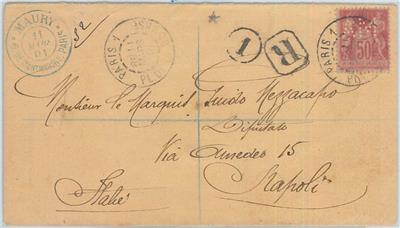 MAURY
11
01
52
PARIS 1
1
R
PARIS 1
50
Monsieur le Marquis Guido Mezzacapo
Deputato
Via Amedeo 15
Napoli
Italie